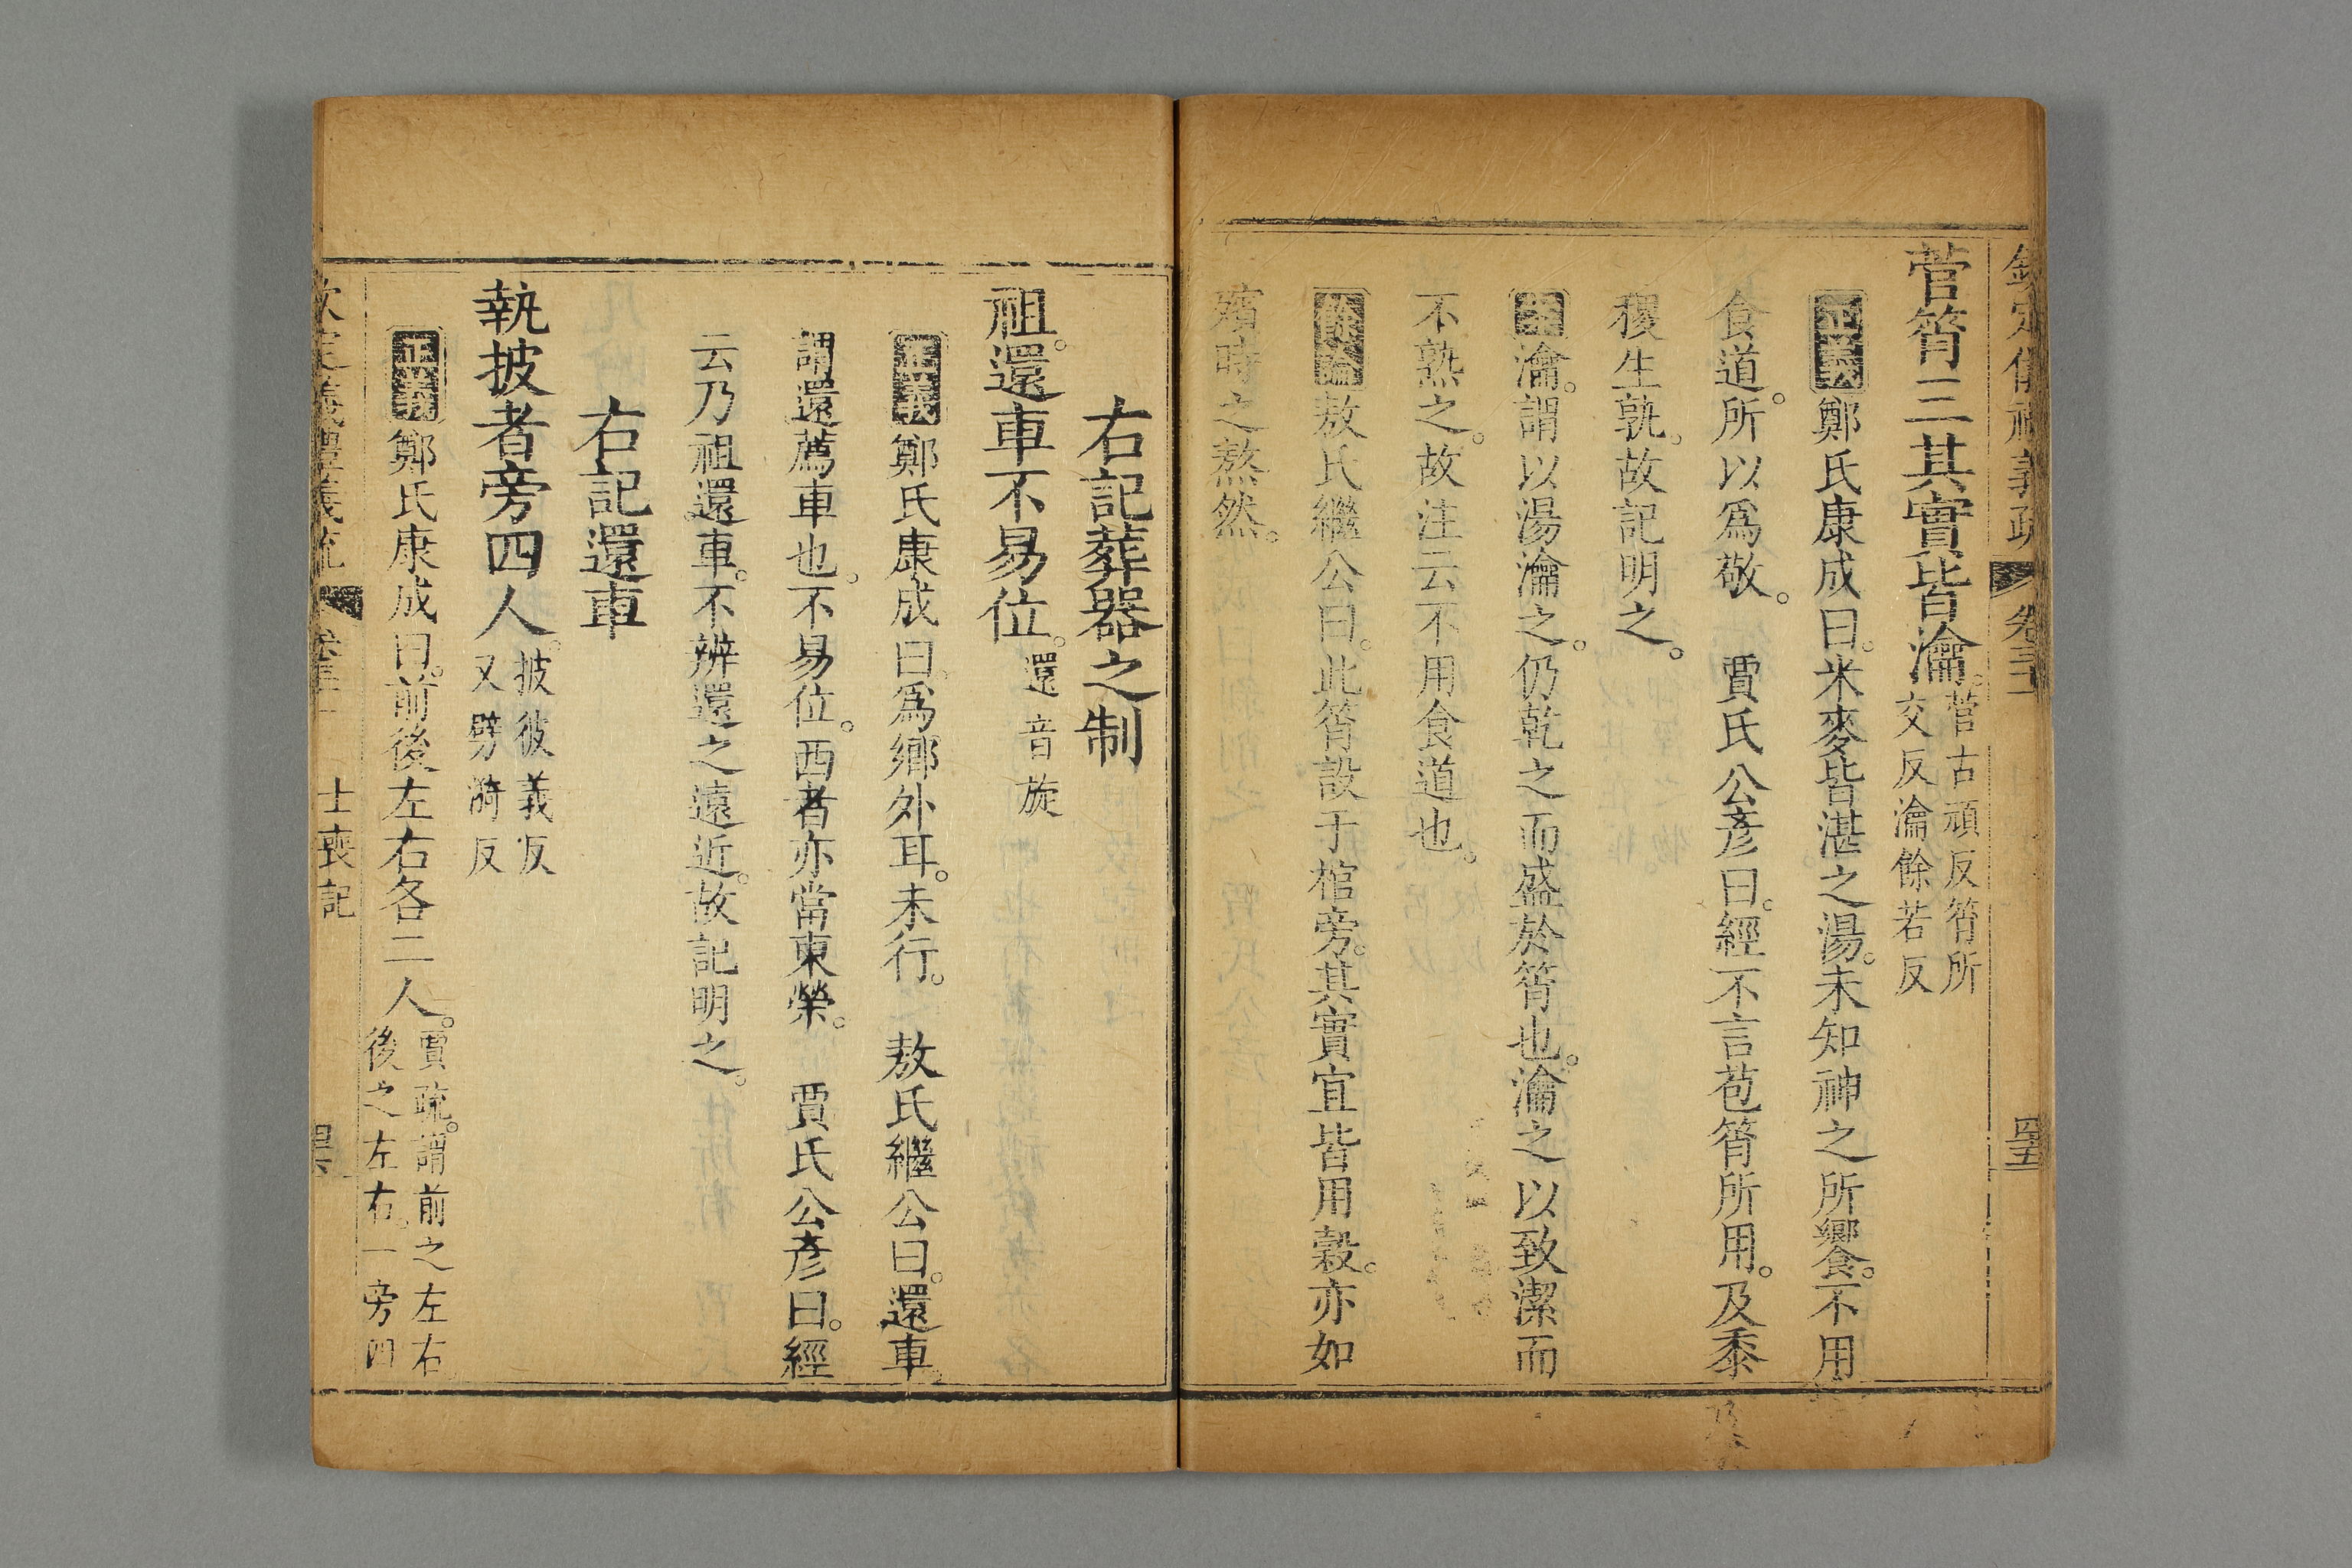 欽定儀禮義疏 卷三十一 四十五
菅筲三其實皆瀹。菅古頑反筲所交反瀹餘若反
正義鄭氏康成曰。米麥皆湛之湯。未知神之所饗。不用
食道。所以爲敬。 賈氏公彥曰。經不言苞筲所用。及黍
稷生孰。故記明之。
瀹。謂以湯瀹之。仍乾之而盛於筲也。瀹之以致潔而
不熟之。故注云不用食道也。
餘論敖氏繼公曰。此筲設于棺旁。其實宜皆用穀。亦如
殯時之熬然。
右記葬器之制
祖。還車不易位。還音旋
正義鄭氏康成曰。爲鄉外耳。未行。 敖氏繼公曰。還車。
謂還薦車也。不易位。西者亦當東榮。 賈氏公彥曰。經
云乃祖還車。不辨還之遠近。故記明之。
右記還車
執披者旁四人。披彼義反又劈漪反
正義鄭氏康成曰。前後左右各二人。賈疏。謂前之左右後之左右。一旁四
欽定儀禮義疏 士喪記